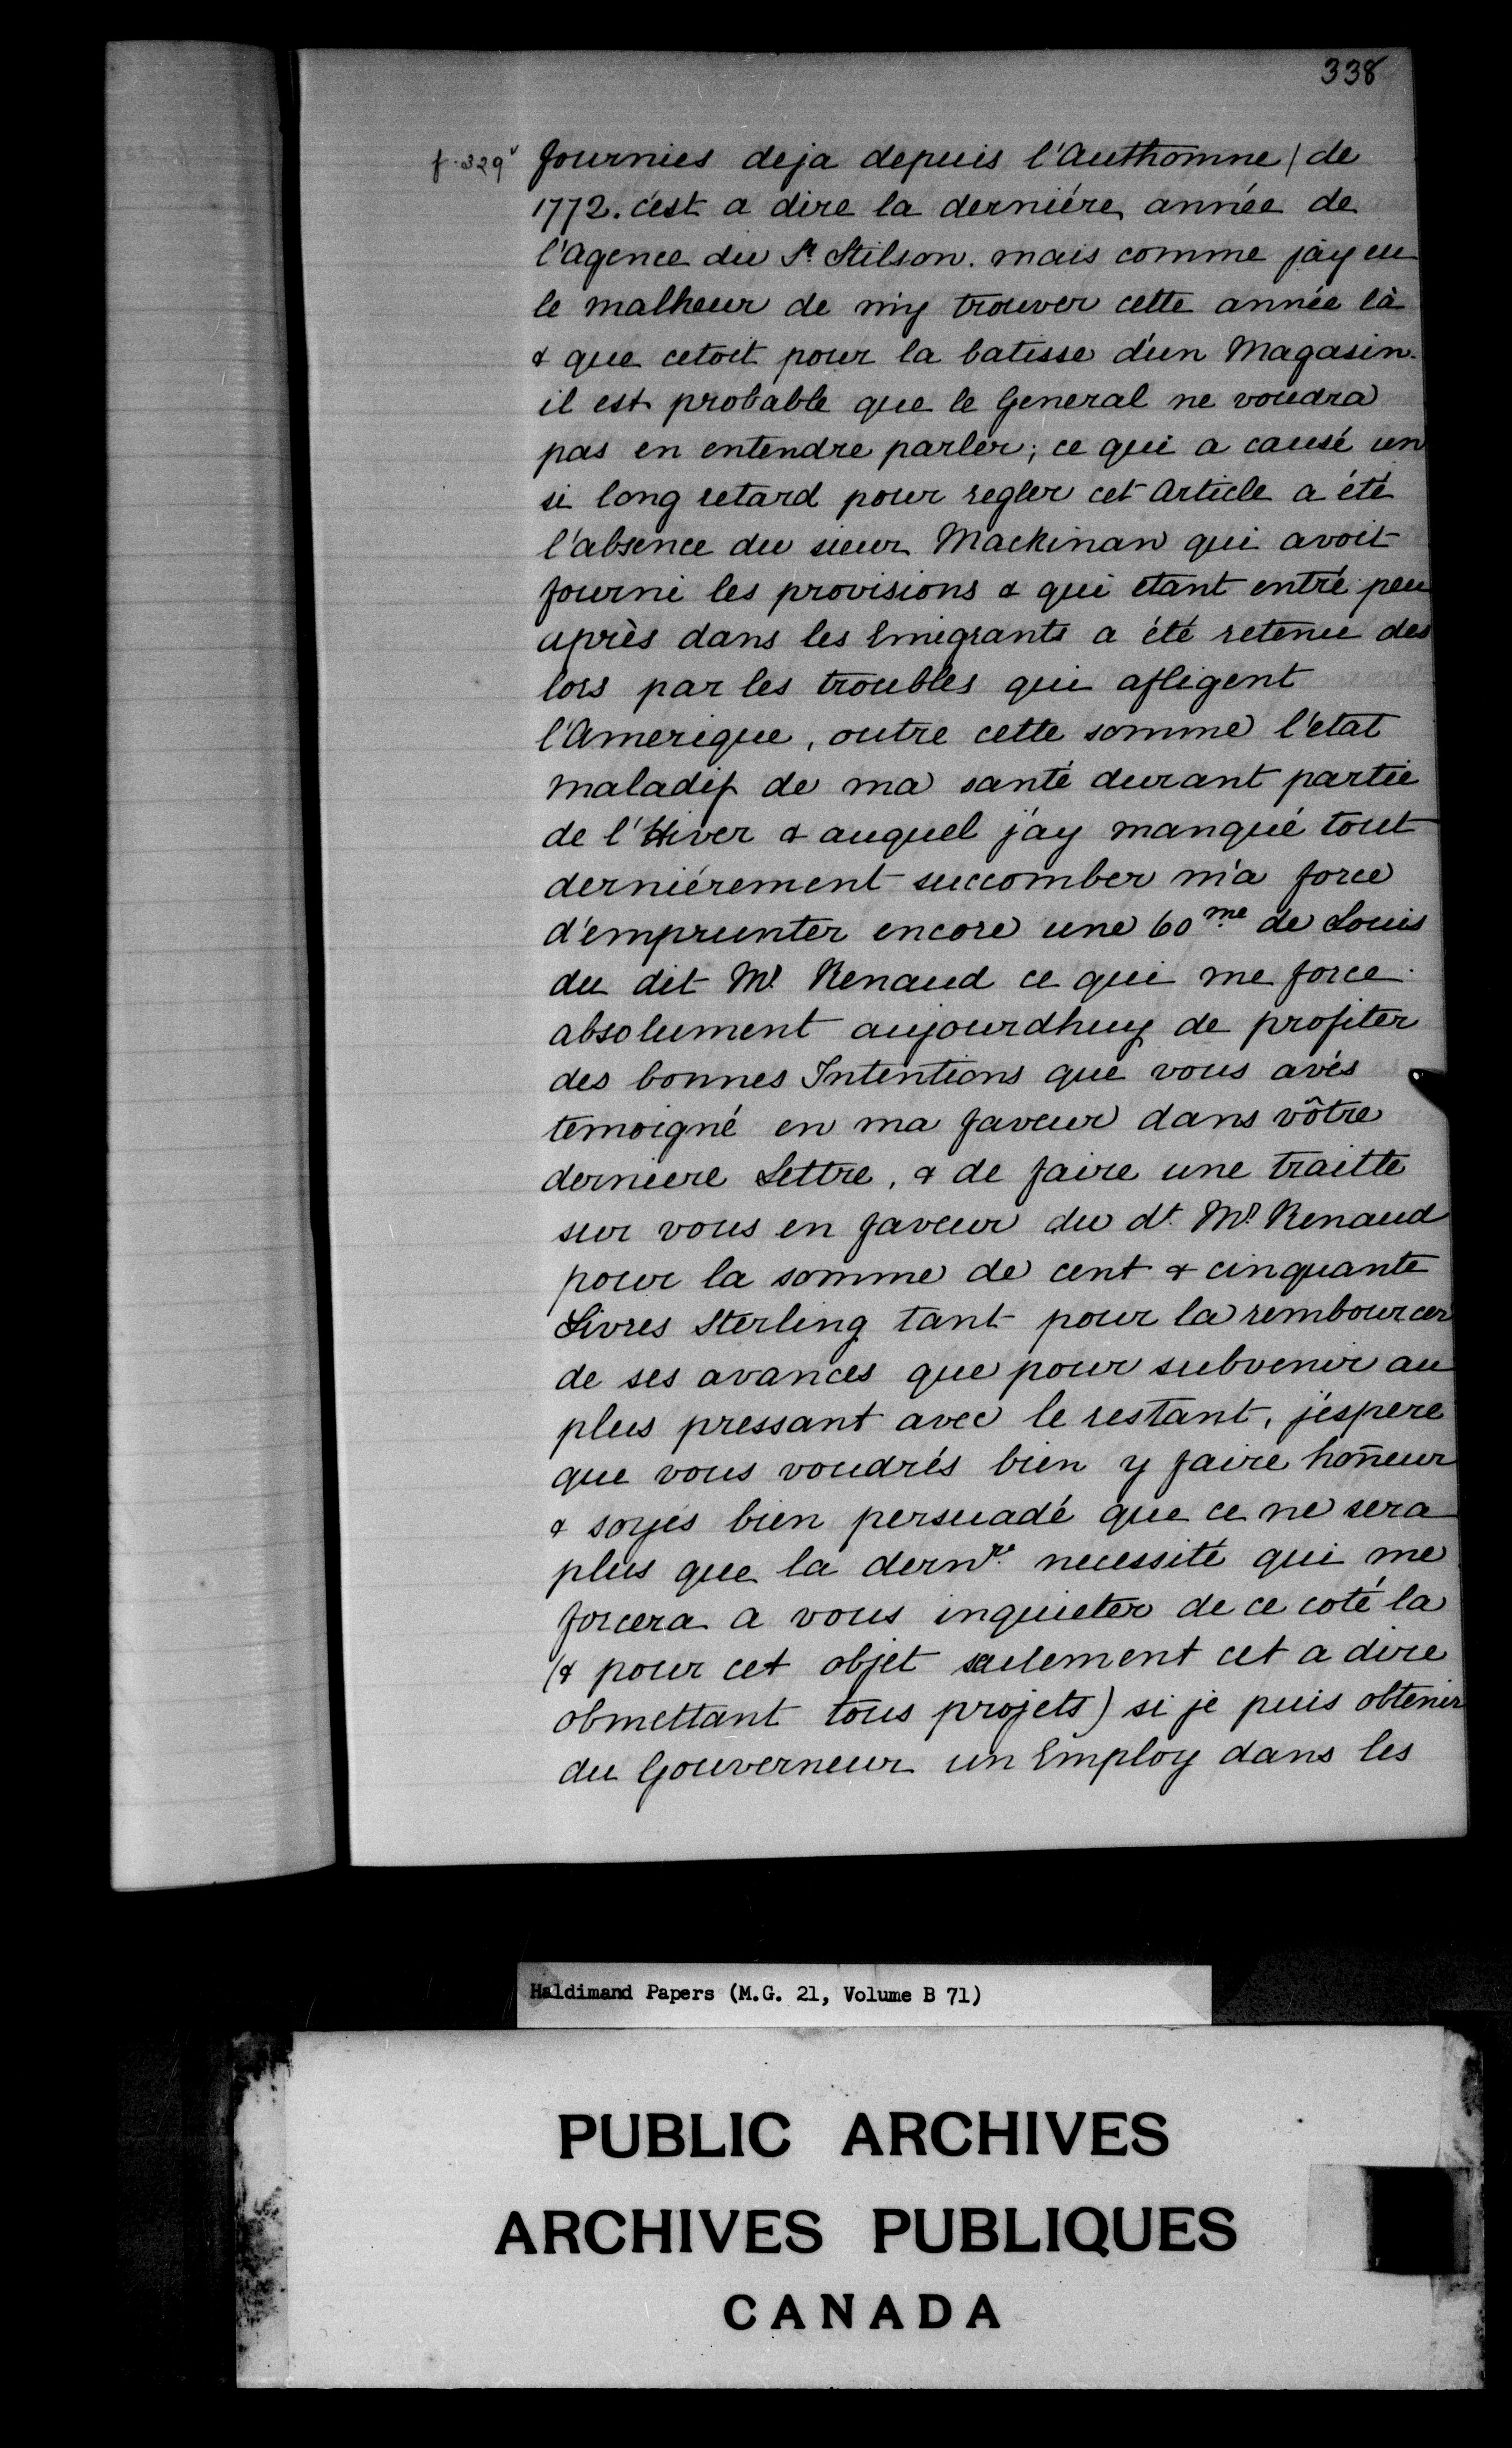 338
f. 329v fournies deja depuis l'Authomne / de
1772. c'est a dire la derniére année de
l'Agence du Sr. Stilson. mais comme j'ay eu
le malheur de m'y trouver cette année là
& que cetoit pour la batisse d'un Magasin.
il est probable que le General ne voudra
pas en entendre parler; ce qui a causé un
si long retard pour regler cet Article a été
l'absence du sieur Mackinan qui avoit
fourni les provisions & qui etant entré peu
après dans les Emigrants a été retenu des
lors par les troubles qui afligent
l'Amerique, outre cette somme l'etat
maladif de ma santé durant partie
de l'Hiver & auquel j'ay manqué tout
derniérement succomber m'a force
d'emprunter encore une 60me. de Louis
du dit Mr. Renaud ce qui me force
absolument aujourdhuy de profiter
des bonnes Intentions que vous avés
temoigné en ma faveur dans vôtre
derniere Lettre, & de faire une traitte
sur vous en faveur du dt. Mr. Renaud
pour la somme de cent & cinquante
Livres Sterling tant pour la rembourcer
de ses avances que pour subvenir au
plus pressant avec le restant, j'espere
que vous voudrés bien y faire hoñeur
& soyés bien persuadé que ce ne sera
plus que la dernre. necessité qui me
forcera a vous inquieter de ce coté la
(& pour cet objet seulement cet a dire
obmettant tous projets) si je puis obtenir
du Gouverneur un Employ dans les
Haldimand Papers (M.G. 21, Volume B 71)
PUBLIC ARCHIVES
ARCHIVES PUBLIQUES
CANADA